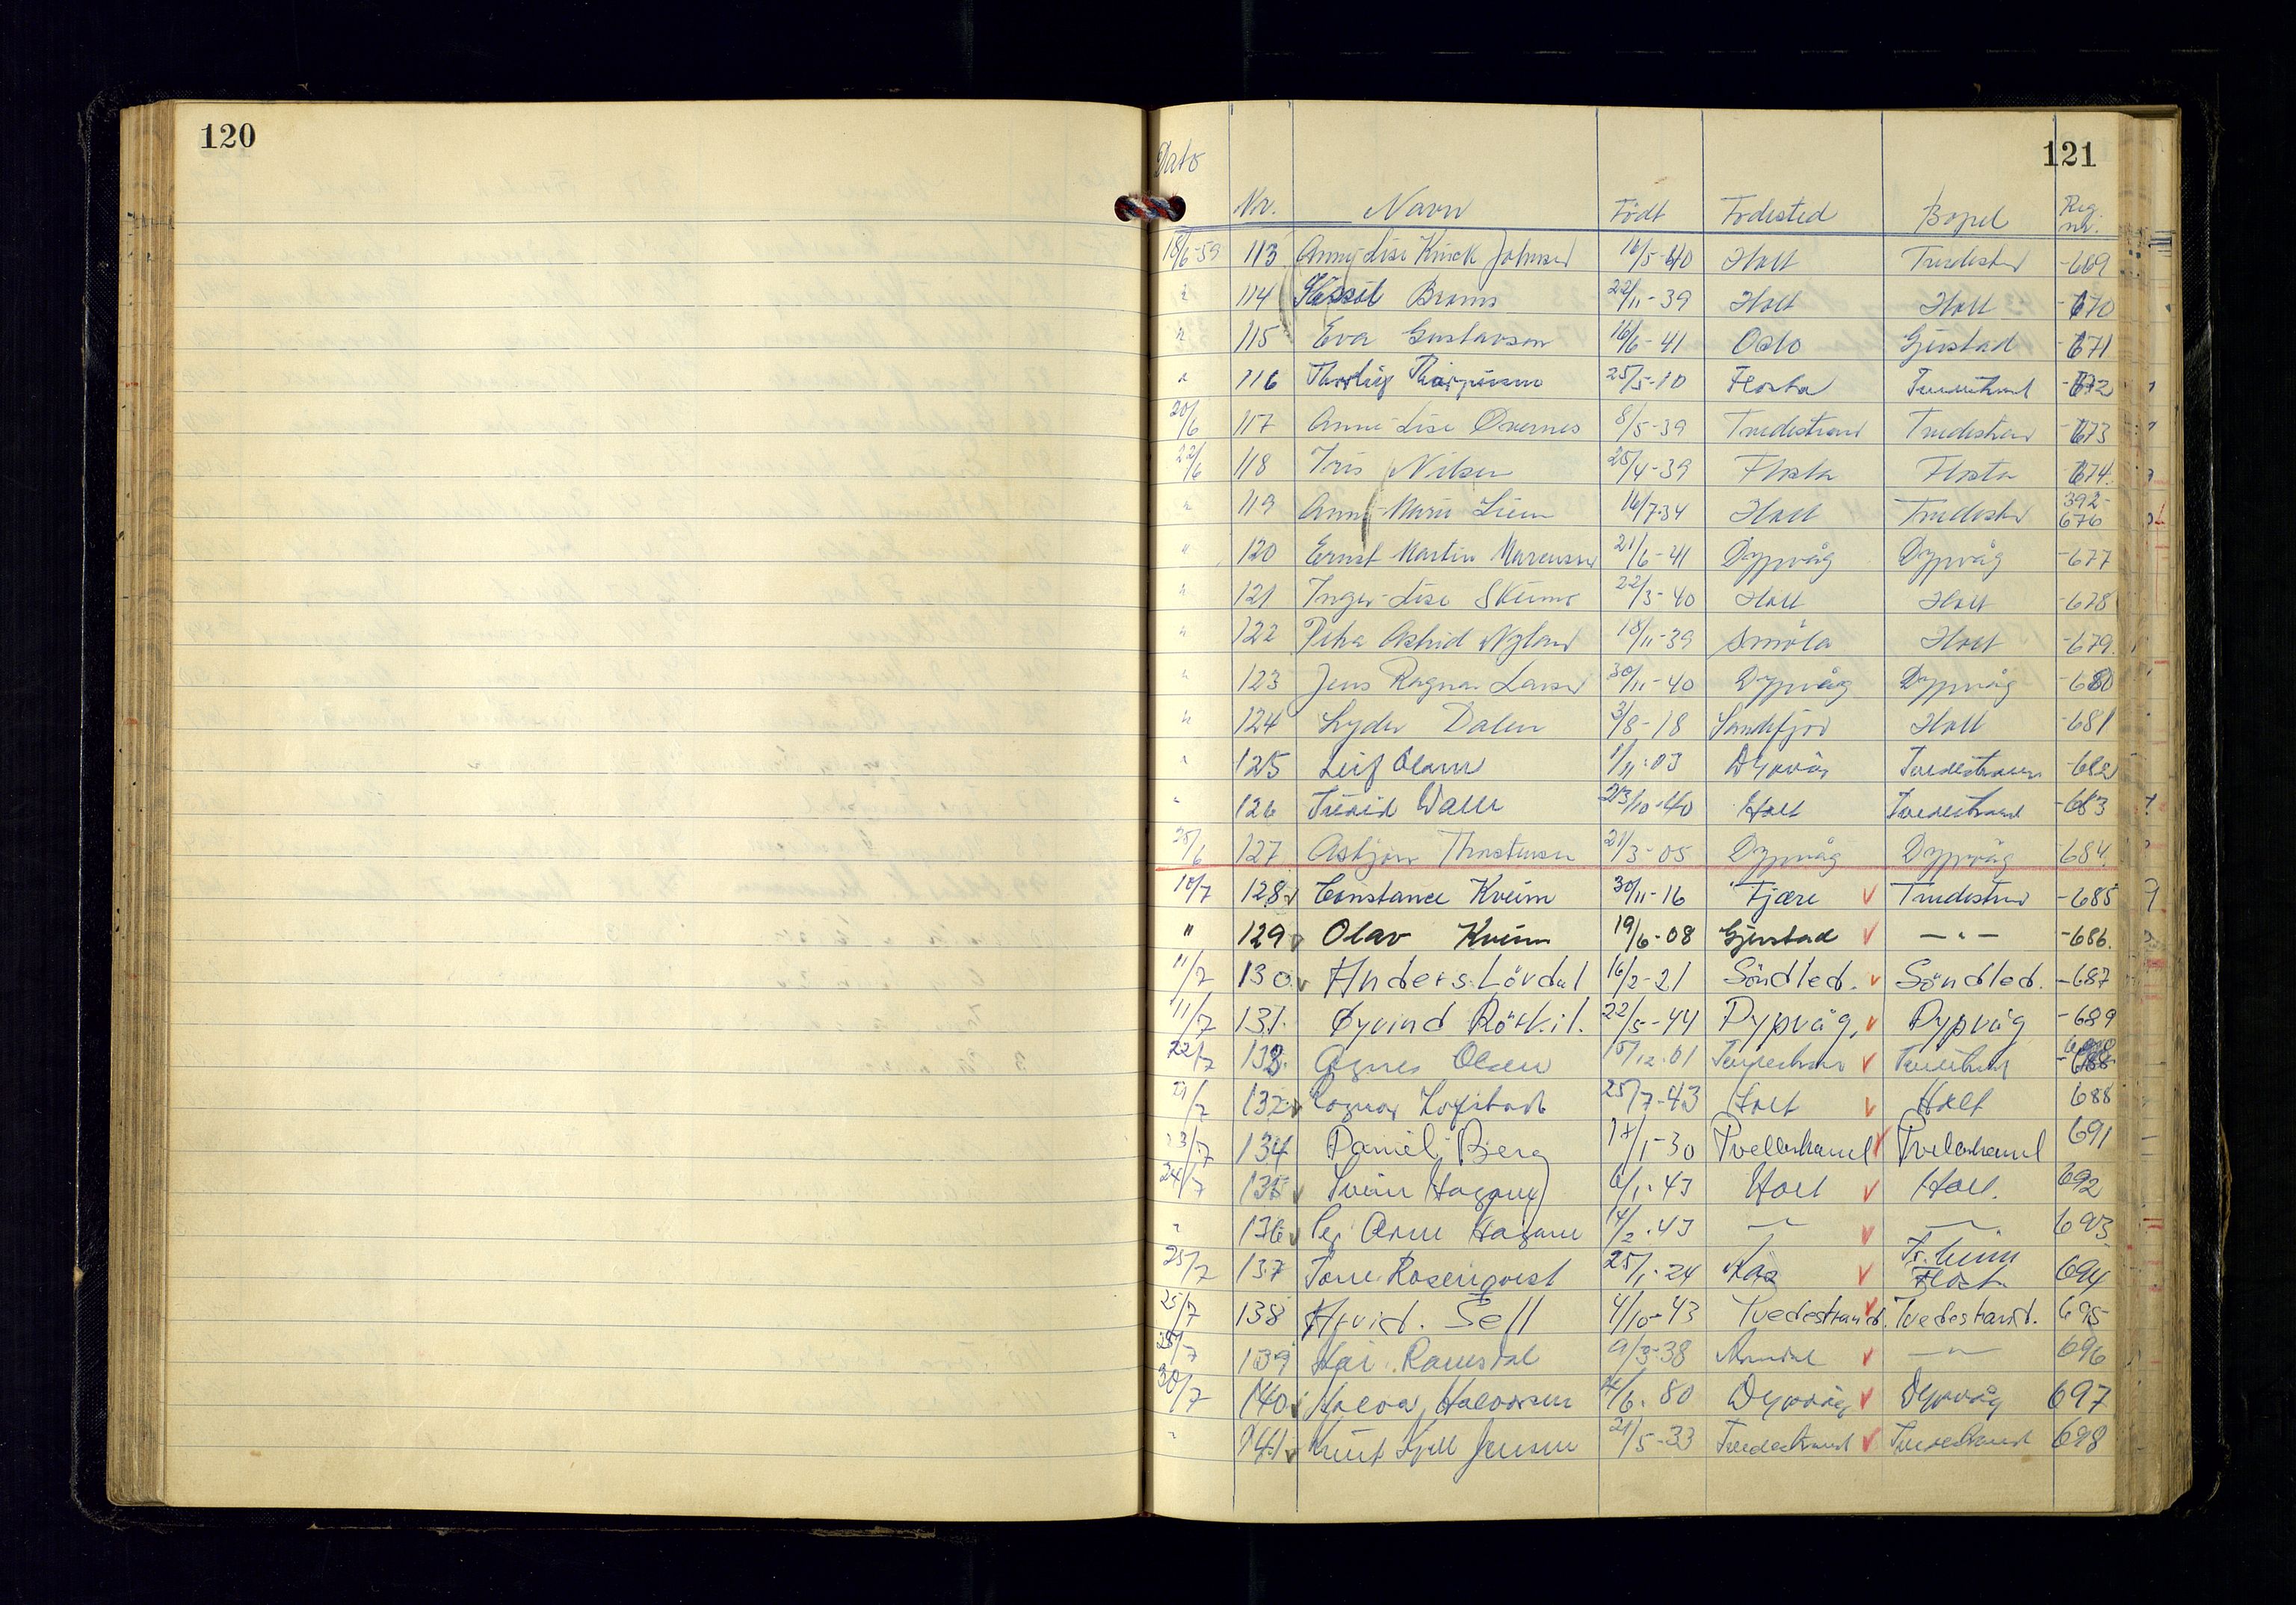 120
121
Dato
Nr. Navn Født Fødested Bopel Reg. nr.
18/6-59 113 Anne Lise Kinck Johnsen 16/5-40 Holt Tvedestrd -669
" 114 Brams 22/11-39 Holt Holt -670
" 115 Eva Gustavson 16/6-41 Oslo Gjerstad -671
" 116 25/5-10 Flosta Tvedestrand -672
20/6 117 Anne Lise Øvernes 8/5-39 Tvedestrand Tvedestran -673
22/6 118 Iris Nilsen 25/4-39 Flosta Flosta -674.
" 119 Anne-Marie Liene 16/7-34 Holt Tvedestr 392-676
" 120 Ernst Martin Marcussen 21/6-41 Dypvåg Dypvåg -677
" 121 Inger-Lise Skeimo 22/3-40 Holt Holt -678
" 122 Petra Astrid Nyland 18/11-39 Smöla Holt -679.
" 123 Jens Ragnar Larsen 30/11-40 Dypvåg Dypvåg -680
" 124 Lyder Dalen 3/8-18 Sandefjord Holt -681
" 125 Leif Olsen 1/11-03 Dypvåg Tvedestrand -682
" 126 Walle 23/10-40 Holt Tvedestrand -683
25/6 127 Asbjørn Thorstensen 21/3-05 Dypvåg Dypvåg -684.
10/7 128 Constance Kveim 30/11-16 Fjære Tvedestrand -685
" 129 Olav Kveim 19/6-08 Gjerstad — " — -686.
11/7 130 Anders Lövdal 16/2-21 Söndled. Söndled. -687
11/7 131. Øyvind Rörkil. 22/5-44 Dypvåg, Dypvåg -689
22/7 133. Agnes Olsen 15/12-01 Tvedestrand Tvedestrand
21/7 132 Ragnar 25/7-43 Holt Holt 688
23/7 134 Daniel Berg 17/1-30 Tvedestrand Tvedestrand 691
24/7 135 Svein Hagane 6/1-43 Holt Holt. 692
" 136 Per Arne Hagane 14/2-43 — " — — " — 693
25/7 137 Tore Rosenqvist 25/1-24 Tr.heim Flosta 694
25/7 138 Arvid. Sell 4/10-43 Tvedestrand. Tvedestrand. 695
28/7 139 Ramsdal 9/3-38 — " — 696
30/7 140 Halvor Halvorsen /6-80 Dypvåg Dypvåg 697
" 141 Knut Kjell Jensen 21/5-33 Tvedestrand Tvedestrand 698